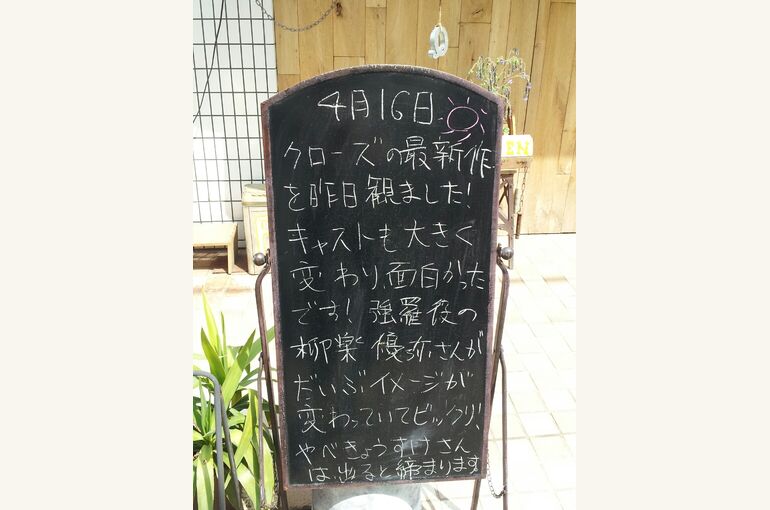 4月16日
クローズの最新作
を昨日観ました!
キャストも大きく
変わり、面白かった
です! 強羅役の
柳楽優弥さんが
だいぶイメージが
変わっていてビックリ、
やべきょうすけさん
は出ると締まります
EN